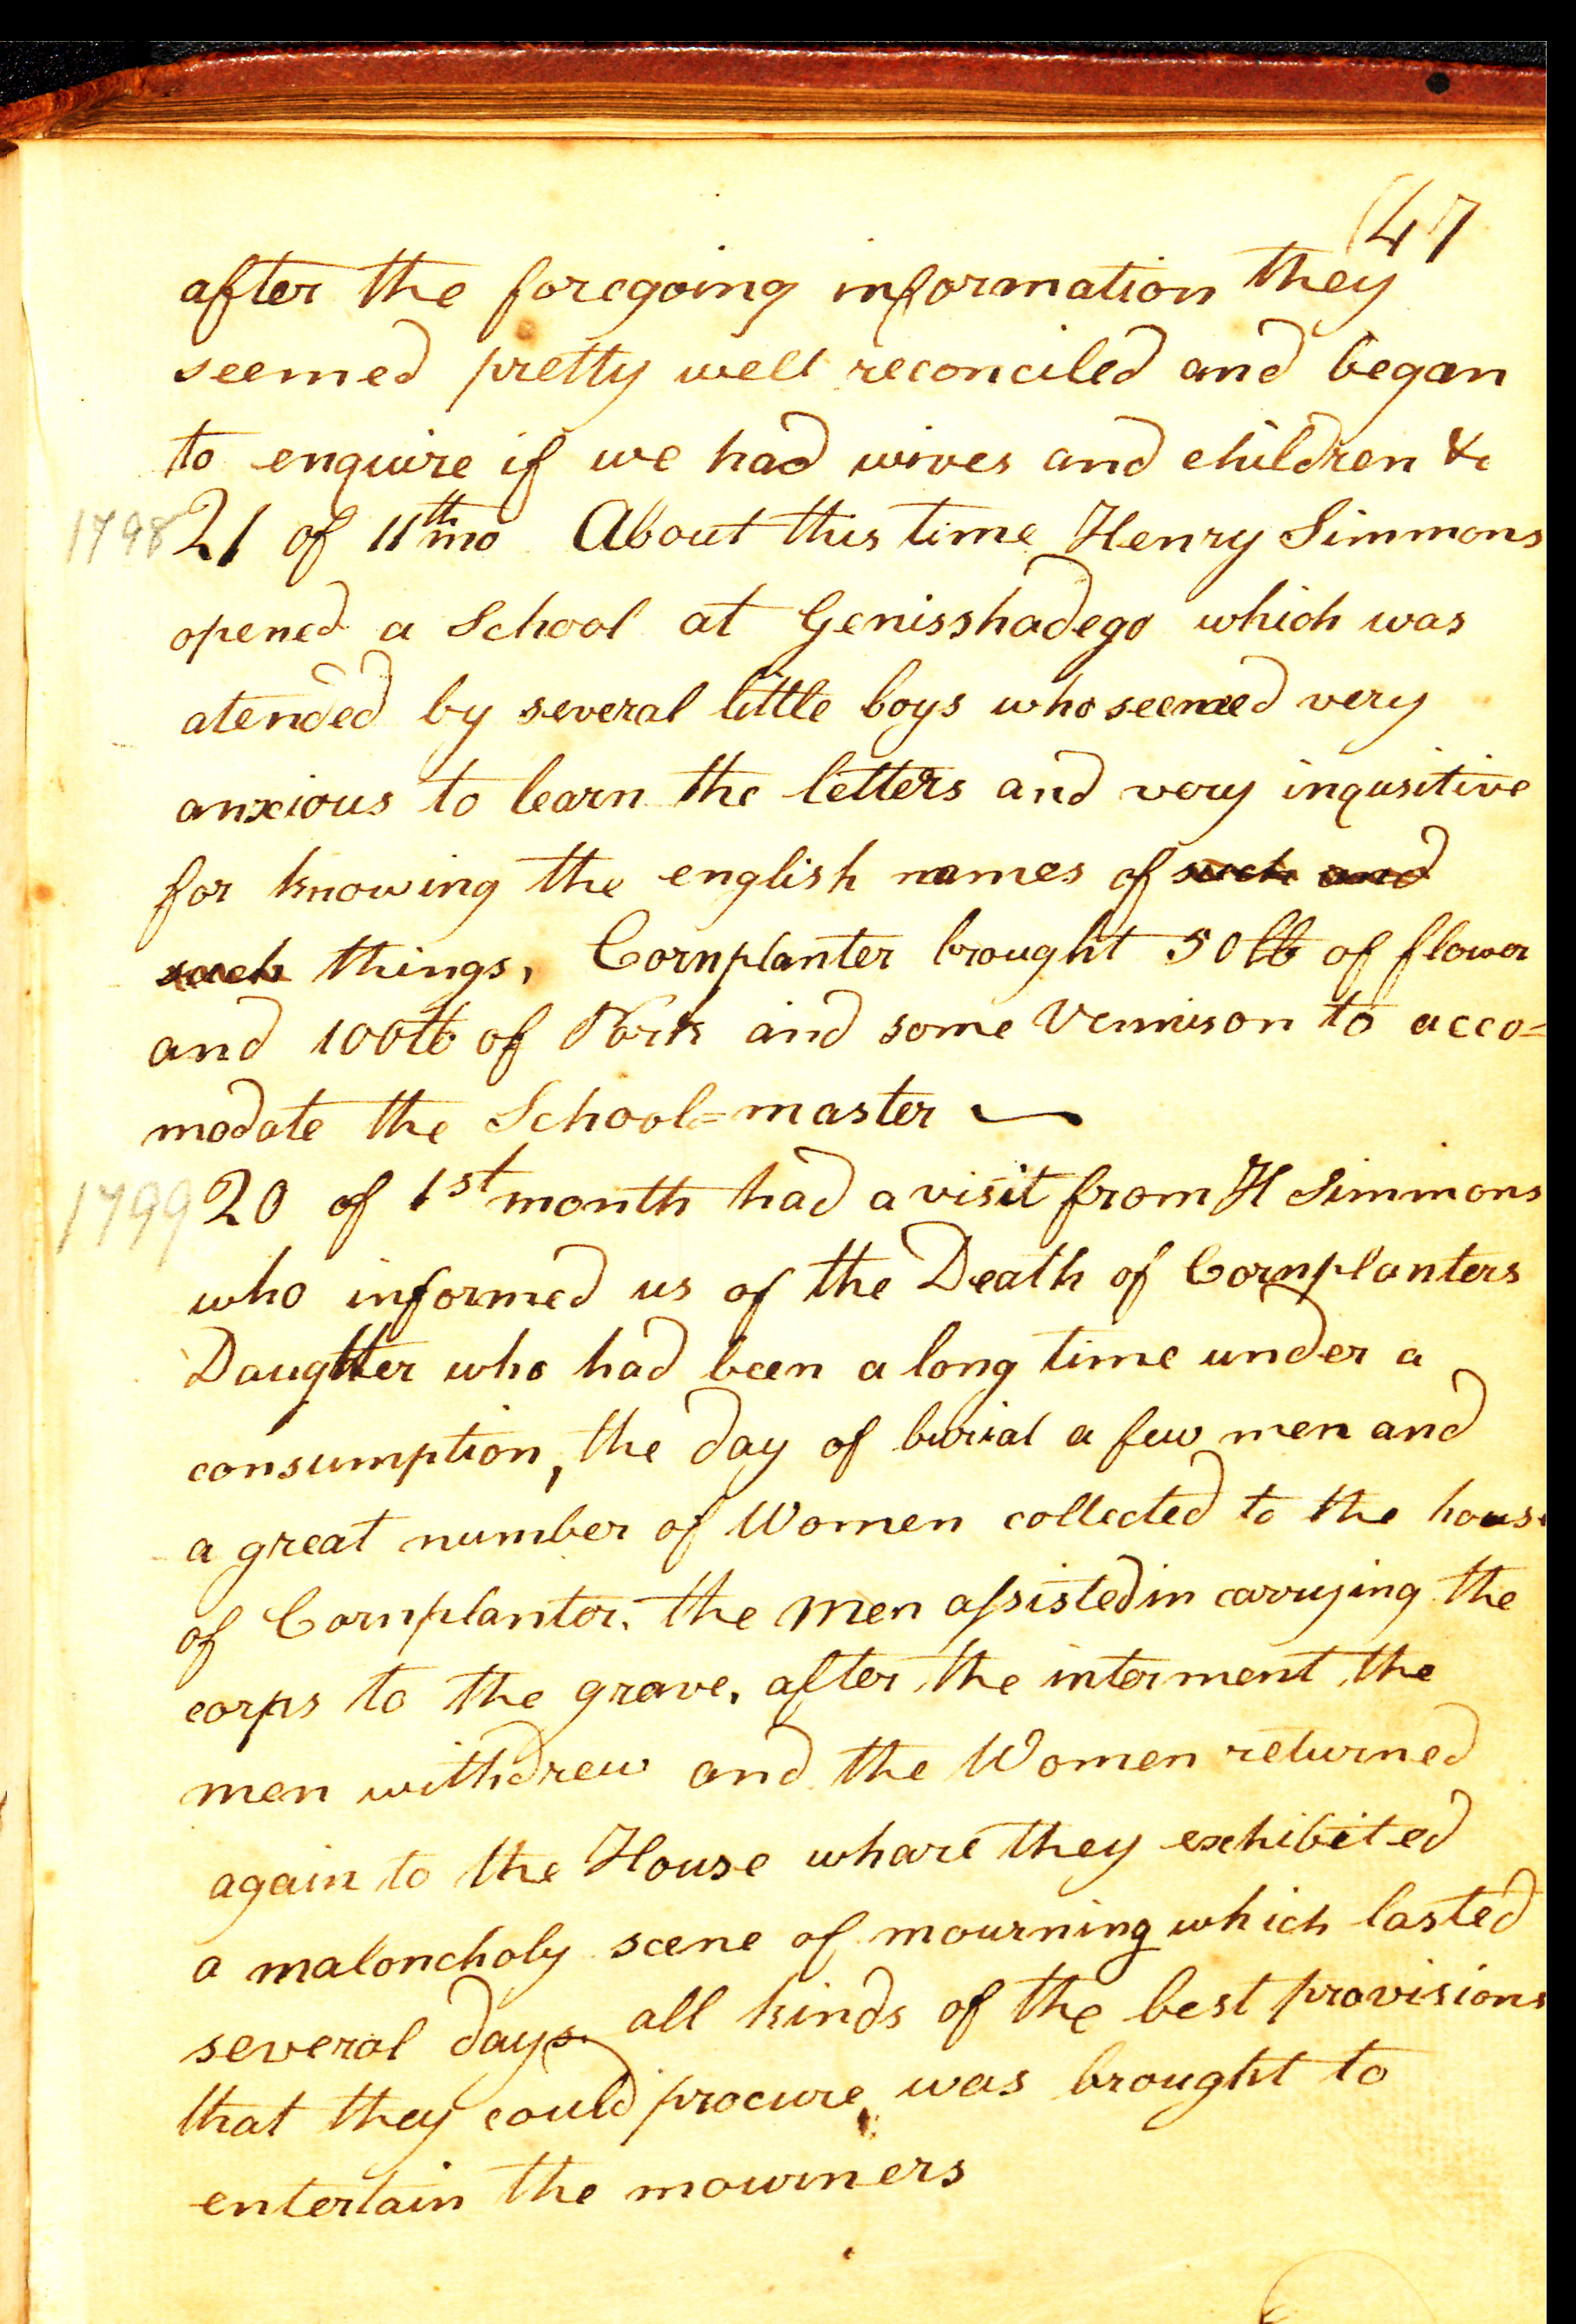 (47
after the foregoing information they
seemed pretty well reconciled and began
to enquire if we had wives and children &c
1798 21 of 11th mo About this time Henry Simmons
opened a School at Genisshadego which was
atended by several little boys who seemed very
anxious to learn the letters and very inqusitive
for knowing the english names of such and
such things, Cornplanter brought 50 lb of flower
and 100 lb of Pork and some Vennison to acco=
modate the School=master
1799 20 of 1st month had a visit from H Simmons
who informed us of the Death of Cornplanters
Daughter who had been a long time under a
consumption, the day of burial a few men and
a great number of Women collected to the house
of Cornplanter. the men assisted in carrying the
corps to the grave, after the interment, the
men withdrew and the Women returned
again to the House whare they exhibited
a maloncholy scene of mourning which lasted
several days. all kinds of the best provisions
that they could procure was brought to
entertain the mourners